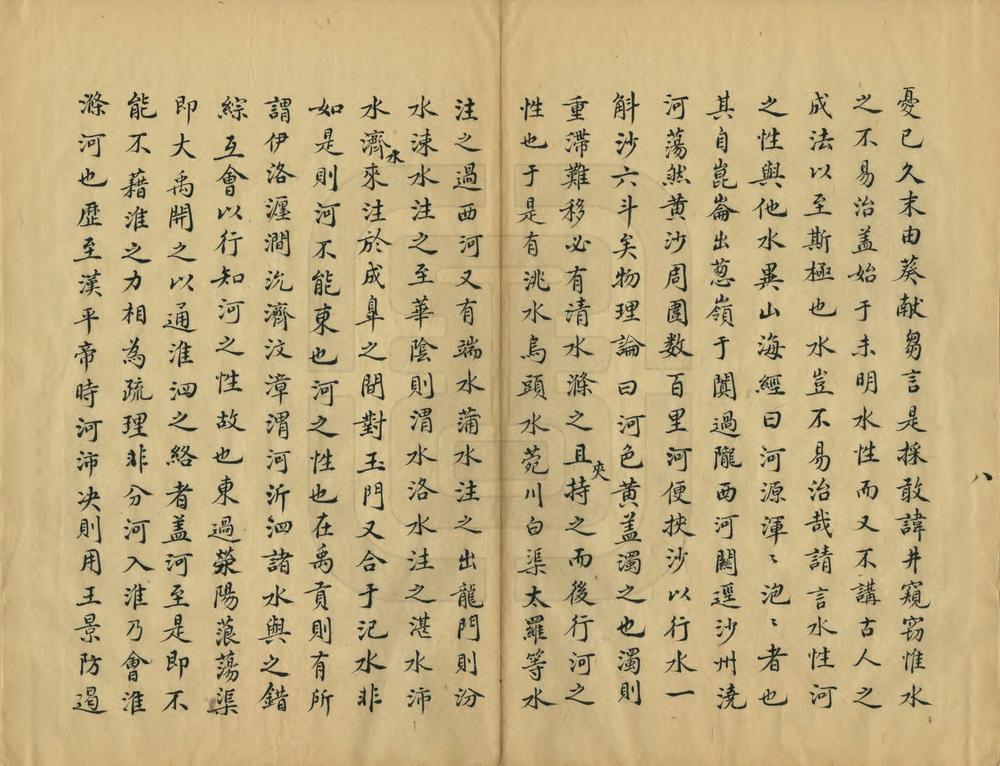 憂已久末由葵献芻言是採敢諱井窺窃惟水
之不易治盖始于未明水性而又不講古人之
成法以至斯極也水豈不易治哉請言水性河
之性與他水異山海經曰河源渾〻泡〻者也
其自崑崙出葱嶺于闐過隴西河關逕沙州澆
河蕩然黄沙周圍数百里河便挾沙以行水一
斛沙六斗矣物理論曰河色黄盖濁之也濁則
重滞難移必有清水滌之且夾持之而後行河之
性也于是有洮水烏頭水苑川白渠太羅等水
注之過西河又有端水蒲水注之出龍門則汾
水涑水注之至華陰則渭水洛水注之湛水沛
水濟水來注於成臯之間對玉門又合于汜水非
如是則河不能東也河之性也在禹貢則有所
謂伊洛瀍澗沇濟汶漳渭河沂泗諸水與之錯
綜互會以行知河之性故也東過滎陽蒗蕩渠
即大禹開之以通淮泗之絡者盖河至是即不
能不藉淮之力相為疏理非分河入淮乃會淮
滌河也歷至漢平帝時河沛决則用王景防遏
八